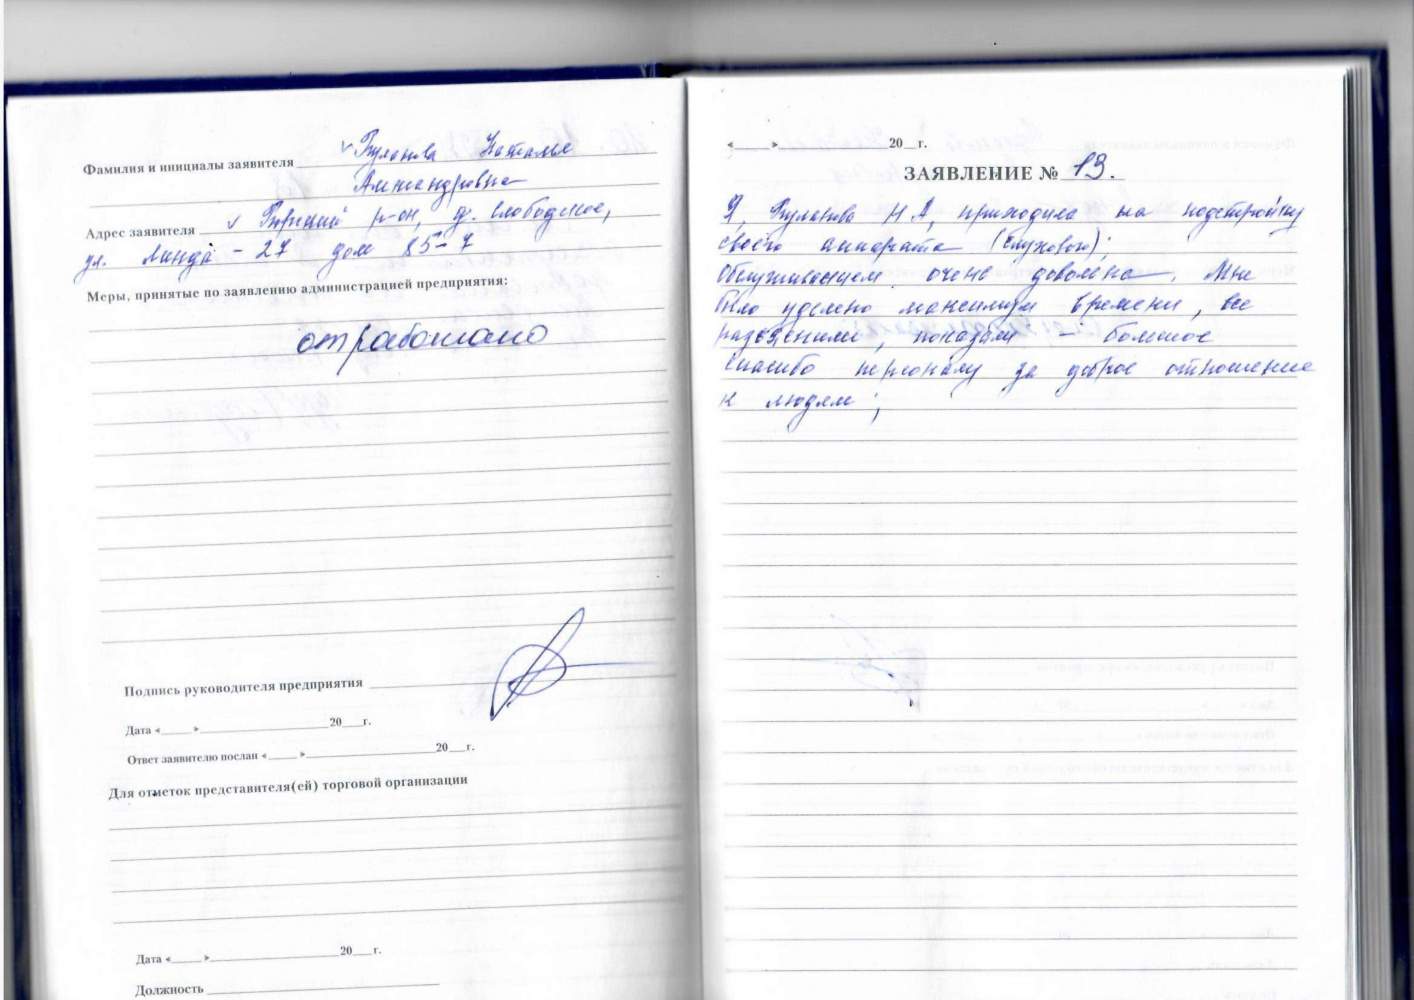 Фамилия и инициалы заявителя Наталья
Александровна
Адрес заявителя р-он, д. Слободское,
ул. Линда - 27 дом 85-7
Меры, принятые по заявлению администрацией предприятия:
отработано
Подпись руководителя предприятия
Дата «____»____________20__г.
Ответ заявителю послан «____»____________20__г.
Для отметок представителя(ей) торговой организации
Дата «____»____________20__г.
Должность
«____»____________20__г.
ЗАЯВЛЕНИЕ № 13.
Я, Н.А, приходила на подстройку
своего аппарата (слухового);
Обслуживанием очень довольна. Мне
было уделено максимум времени, все
разъяснили, показали - большое
спасибо персоналу за доброе отношение
к людям;